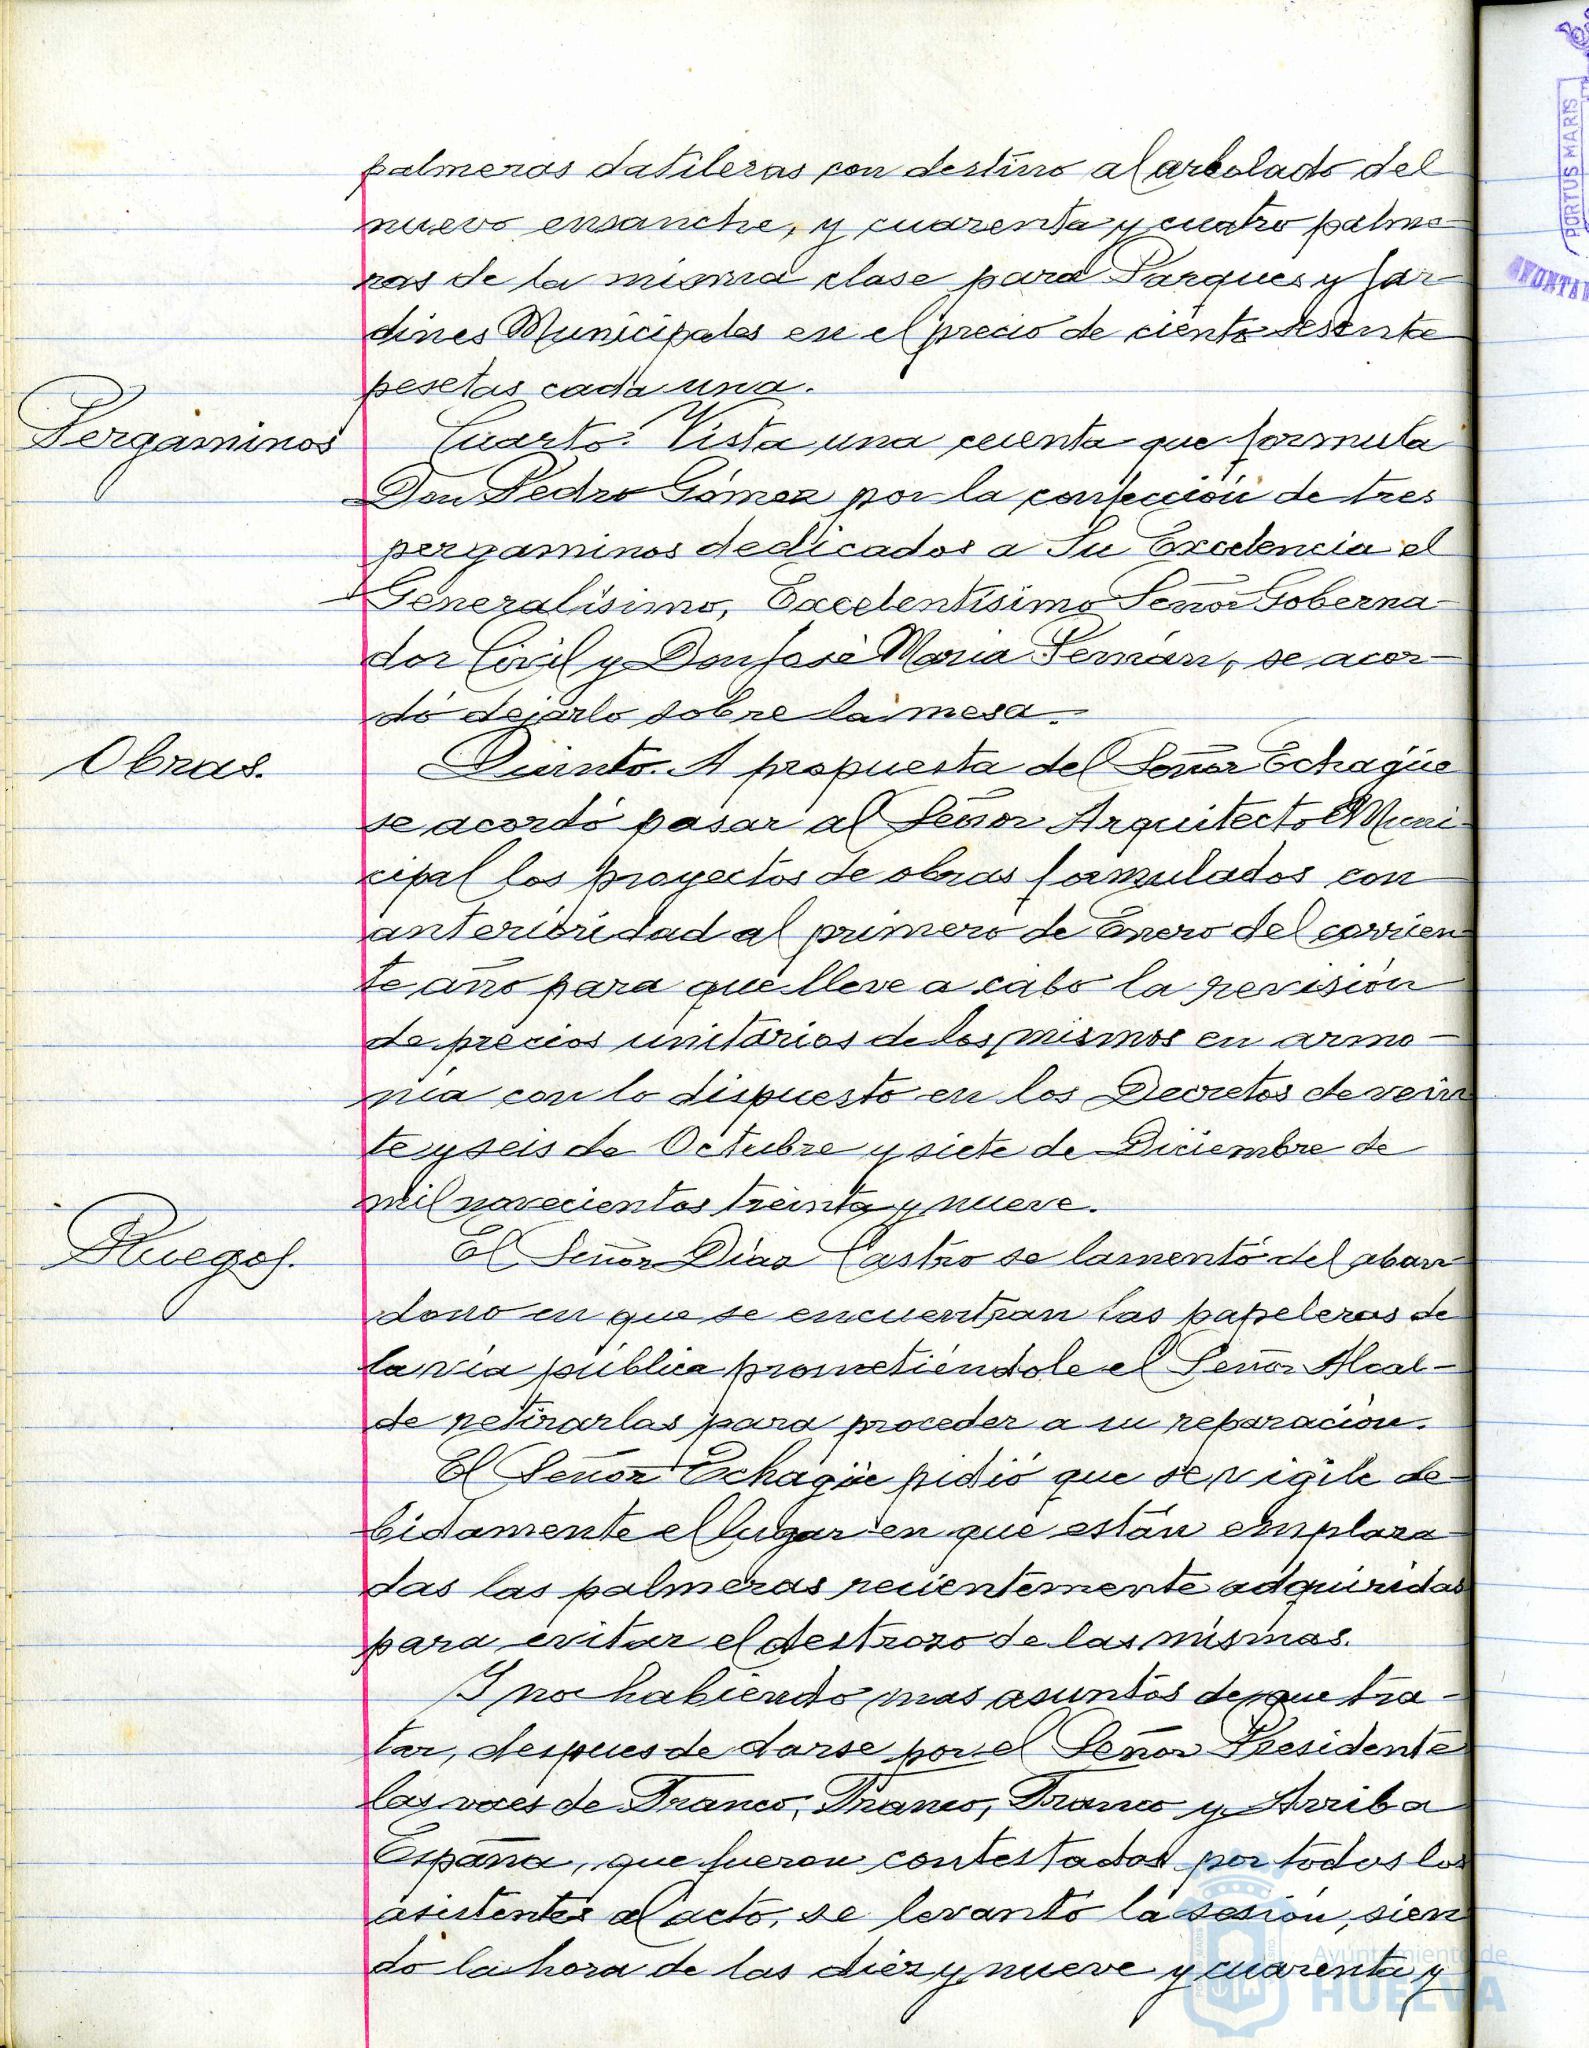 palmeras datileras con destino al arbolado del
nuevo ensanche, y cuarenta y cuatro palme
ras de la misma clase para Parques y Jar
dines Municipales en el precio de ciento sesenta
pesetas cada una.
Pergaminos
Cuarto. Vista una cuenta que formula
Don Pedro Gómez por la confección de tres
pergaminos dedicados a Su Excelencia el
Generalísimo, Excelentísimo Señor Goberna-
dor Civil y Don José María Pemán, se acor-
dó dejarlo sobre la mesa.
Obras.
Quinto. A propuesta del Señor Echagüe
se acordó pasar al Señor Arquitecto Muni-
cipal los proyectos de obras formulados con
anterioridad al primero de Enero del corrien
te año para que lleve a cabo la revisión
de precios unitarios de los mismos en armo-
nía con lo dispuesto en los Decretos de vein
te y seis de Octubre y siete de Diciembre de
mil novecientos treinta y nueve.
Ruegos.
El Señor Díaz Castro se lamentó del aban
dono en que se encuentran las papeleras de
la vía pública prometiéndole el Señor Alcal-
de retirarlas para proceder a su reparación.
El Señor Echagüe pidió que se vigile de-
bidamente el lugar en que están emplaza
das las palmeras recientemente adquiridas
para evitar el destrozo de las mismas.
Y no habiendo mas asuntos de que tra-
tar, despues de darse por el Señor Presidente
las voces de Franco, Franco, Franco y Arriba
España, que fueron contestados por todos los
asistentes al acto, se levantó la sesión, sien
do la hora de las diez y nueve y cuarenta y
PORTUS MARIS
Ayuntamiento de
HUELVA